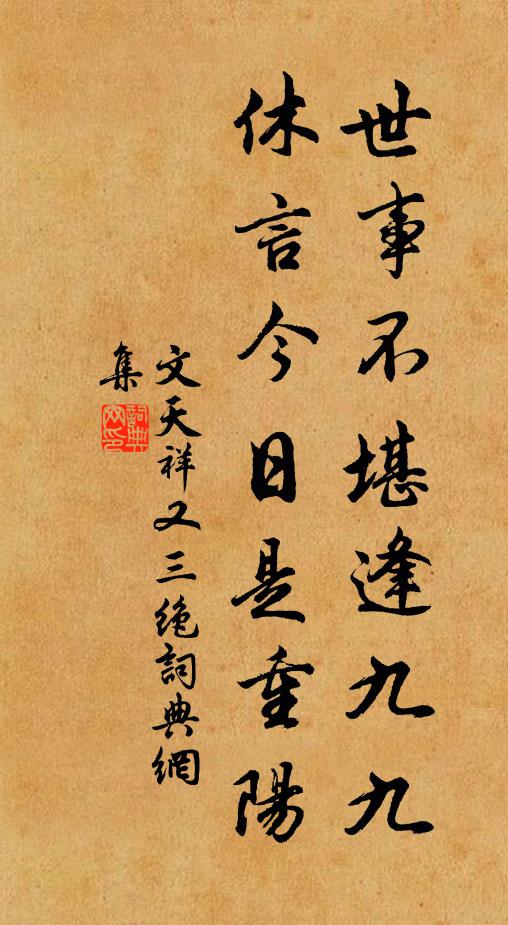 世事不堪逢九九
休言今日是重陽
文天祥又三絶詞典網
集
詞典网印